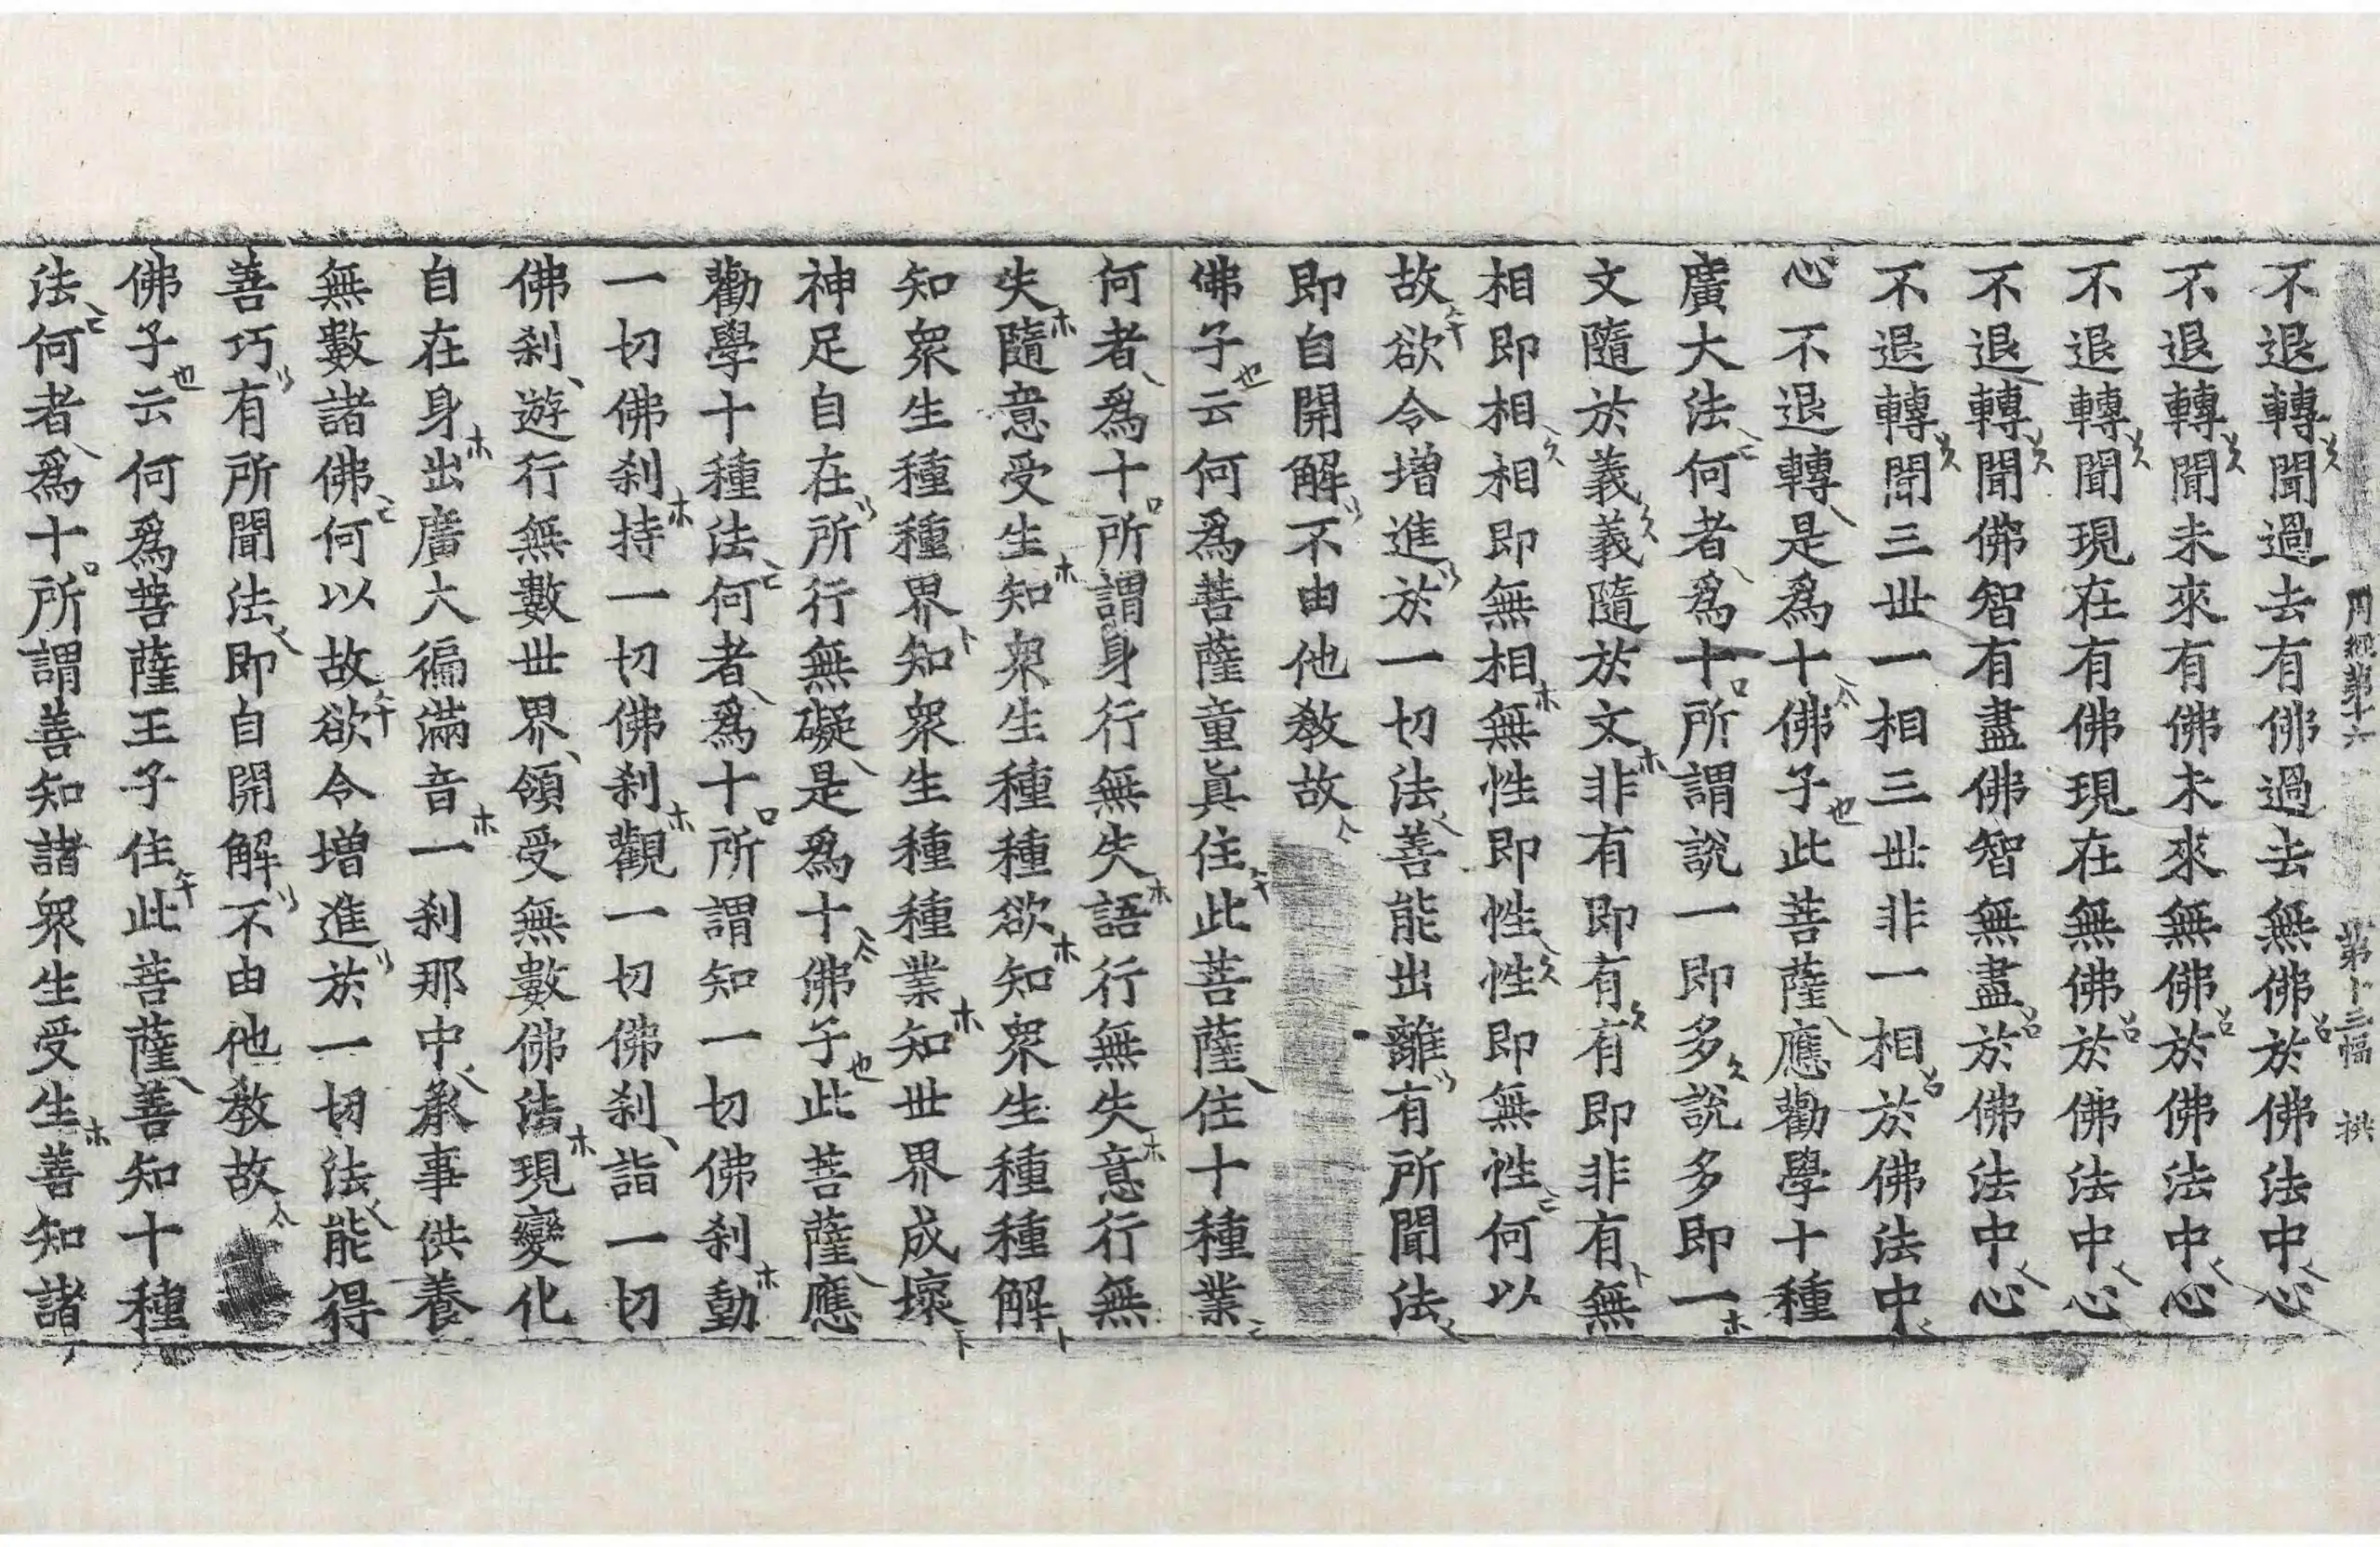 周經第十六 第十三幅 拱
不退轉聞過去有佛過去無佛於佛法中心
不退轉聞未來有佛未來無佛於佛法中心
不退轉聞現在有佛現在無佛於佛法中心
不退轉聞佛智有盡佛智無盡於佛法中心
不退轉聞三世一相三世非一相於佛法中
心不退轉是爲十佛子此菩薩應勸學十種
廣大法何者爲十所謂說一即多說多即一
文隨於義義隨於文非有即有有即非有無
相即相相即無相無性即性性即無性何以
故欲令增進於一切法善能出離有所聞法
即自開解不由他教故
佛子云何爲菩薩童真住此菩薩住十種業
何者爲十所謂身行無失語行無失意行無
失隨意受生知衆生種種欲知衆生種種解
知衆生種種界知衆生種種業知世界成壞
神足自在所行無礙是爲十佛子此菩薩應
勸學十種法何者爲十所謂知一切佛刹動
一切佛刹持一切佛刹觀一切佛刹詣一切
佛刹遊行無數世界領受無數佛法現變化
自在身出廣大徧滿音一刹那中承事供養
無數諸佛何以故欲令增進於一切法能得
善巧有所聞法即自開解不由他教故
佛子云何爲菩薩王子住此菩薩善知十種
法何者爲十所謂善知諸衆生受生善知諸